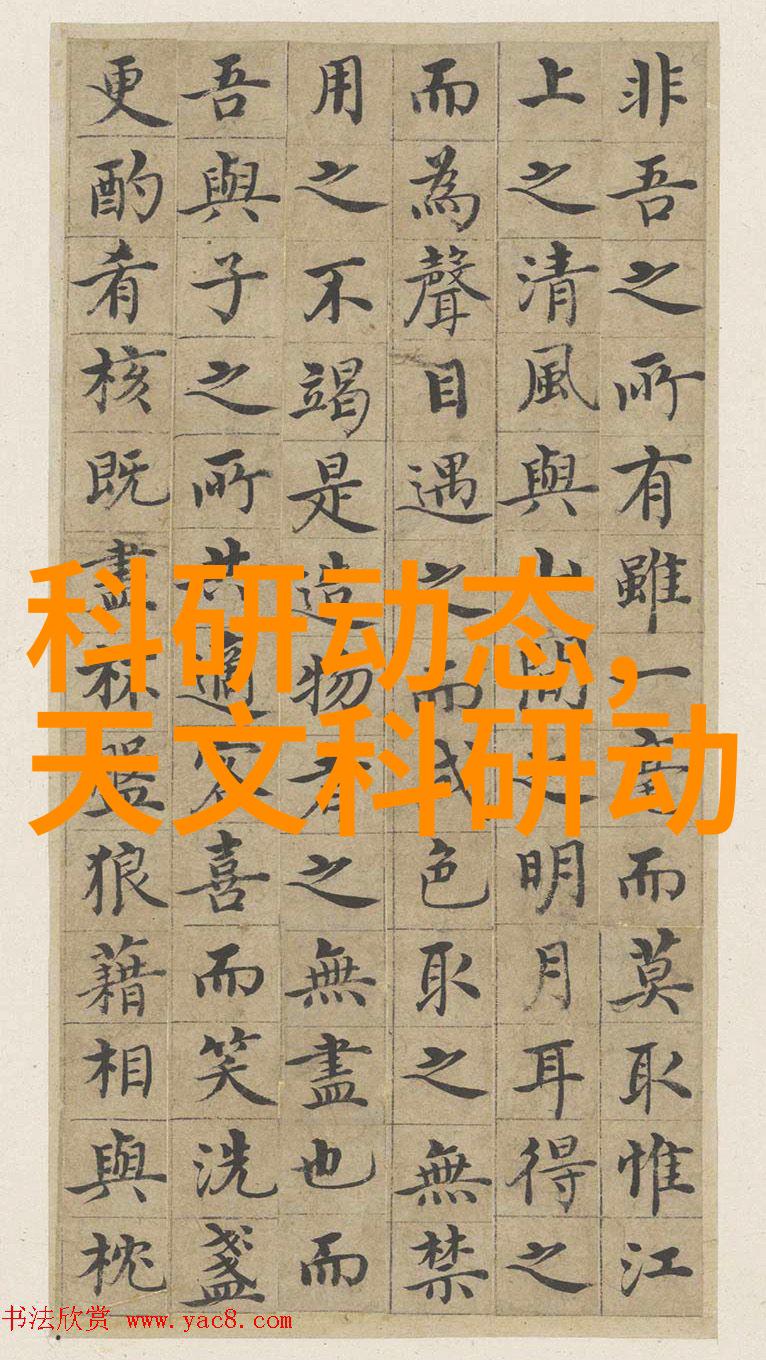 非吾之所有雖一毫而莫取惟江
上之清風與山間之明月耳得之
而為聲目遇之而成色取之無禁
用之不竭是造物者之無盡也而
吾與子之所共適客喜而笑洗盞
更酌肴核既盡杯盤狼藉相與枕
科研动态,
天文科研动
书法欣赏 www.yac8.com